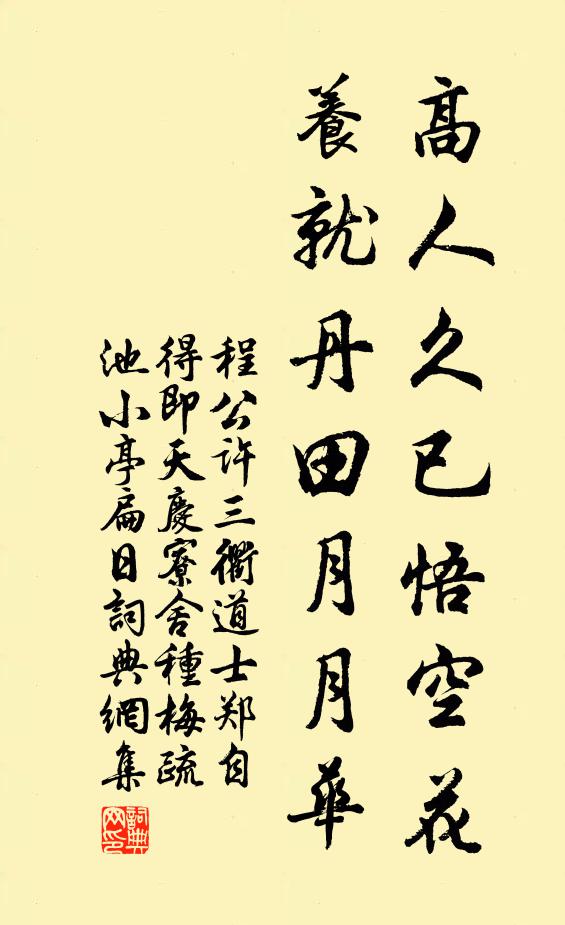 高人久已悟空花
養就丹田月月華
程公許三衢道士郑自
得即天慶寮舍種梅疏
池小亭扁日詞典網集
詞典網印